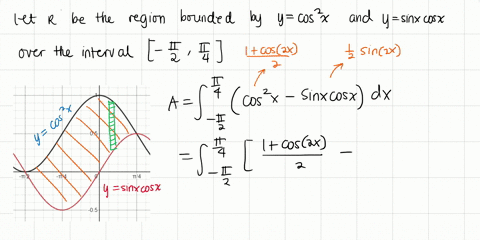 Let R be the region bounded by y = cos²x and y = sinx cosx
over the interval [-π/2, π/4] (1+cos(2x))/2 1/2 sin(2x)
A = ∫_{-π/2}^{π/4} (cos²x - sinx cosx) dx
= ∫_{-π/2}^{π/4} [ (1+cos(2x))/2 -
y = cos²x
y = sinx cosx
-π/2
-π/4
0
π/4
0.5
-0.5